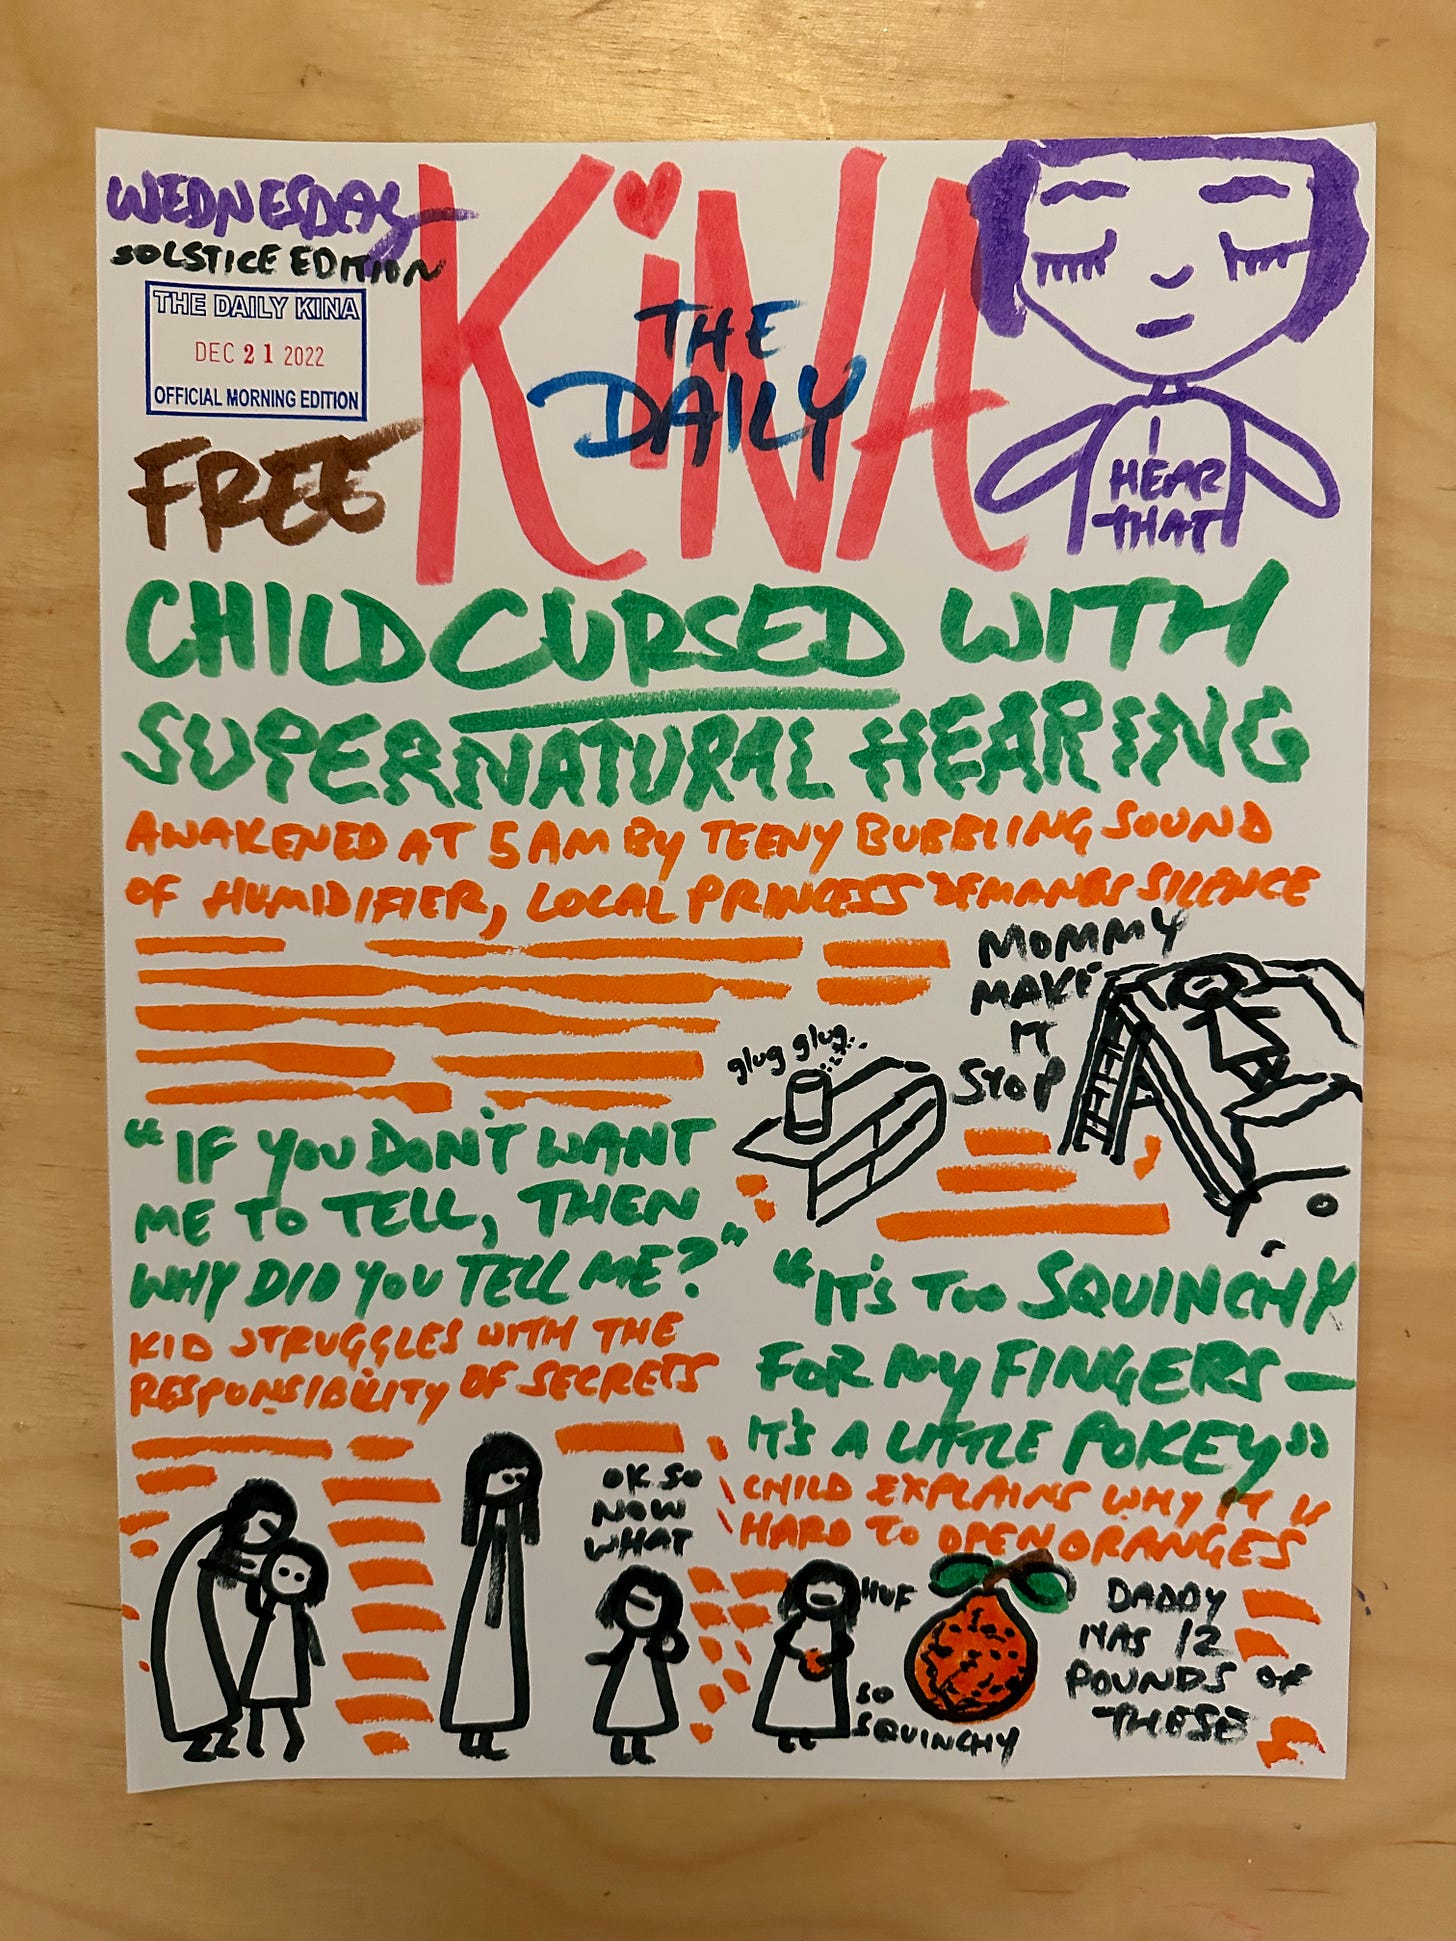 WEDNESDAY
SOLSTICE EDITION
THE DAILY KINA
DEC 21 2022
OFFICIAL MORNING EDITION
FREE
KiNA
THE
DAILY
I
HEAR
THAT
CHILD CURSED WITH
SUPERNATURAL HEARING
AWAKENED AT 5AM BY TEENY BUBBLING SOUND
OF HUMIDIFIER, LOCAL PRINCESS DEMANDS SILENCE
MOMMY
MAKE
IT
STOP
glug glug
"IF YOU DON'T WANT
ME TO TELL, THEN
WHY DID YOU TELL ME?"
KID STRUGGLES WITH THE
RESPONSIBILITY OF SECRETS
OK SO
NOW
WHAT
"IT'S TOO SQUINCHY
FOR MY FINGERS —
IT'S A LITTLE POKEY"
CHILD EXPLAINS WHY IT IS
HARD TO OPEN ORANGES
HUF
SO
SQUINCHY
DADDY
HAS 12
POUNDS OF
THESE